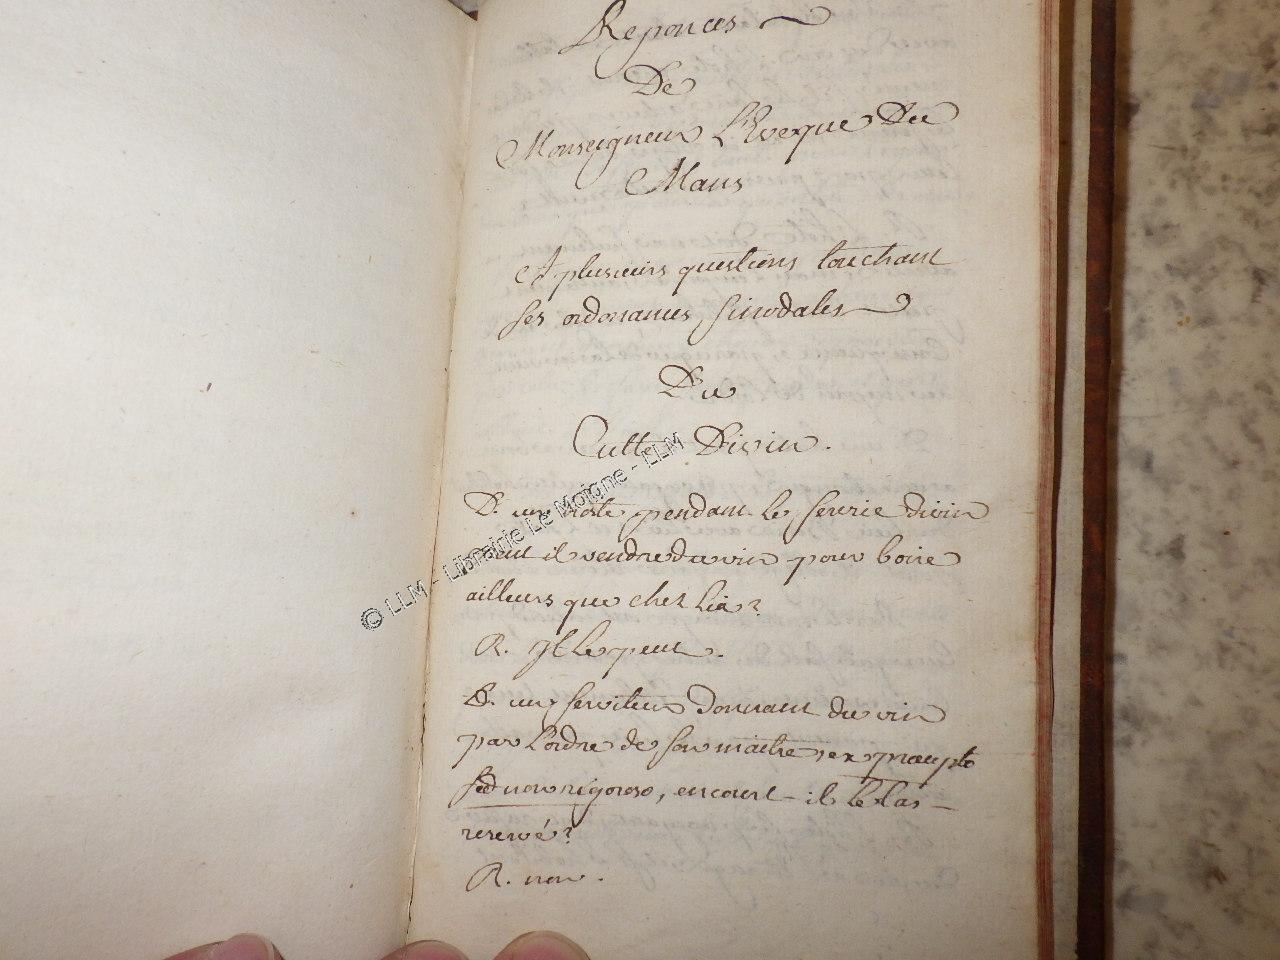 Reponces
De
Monseigneur L'Eveque Du
Mans
A plusieurs questions touchant
ses ordonances sinodales
Du
Culte Divin.
D. un hoste pendant le service divin
peut il vendre du vin pour boire
ailleurs que chez lui?
R. Il le peut.
D. un serviteur donnant du vin
par l'ordre de son maitre, ex præcepto
sed non rigoroso, encourt-il le Cas
reservé?
R. non.
© LLM - Librairie Le Moigne - LLM